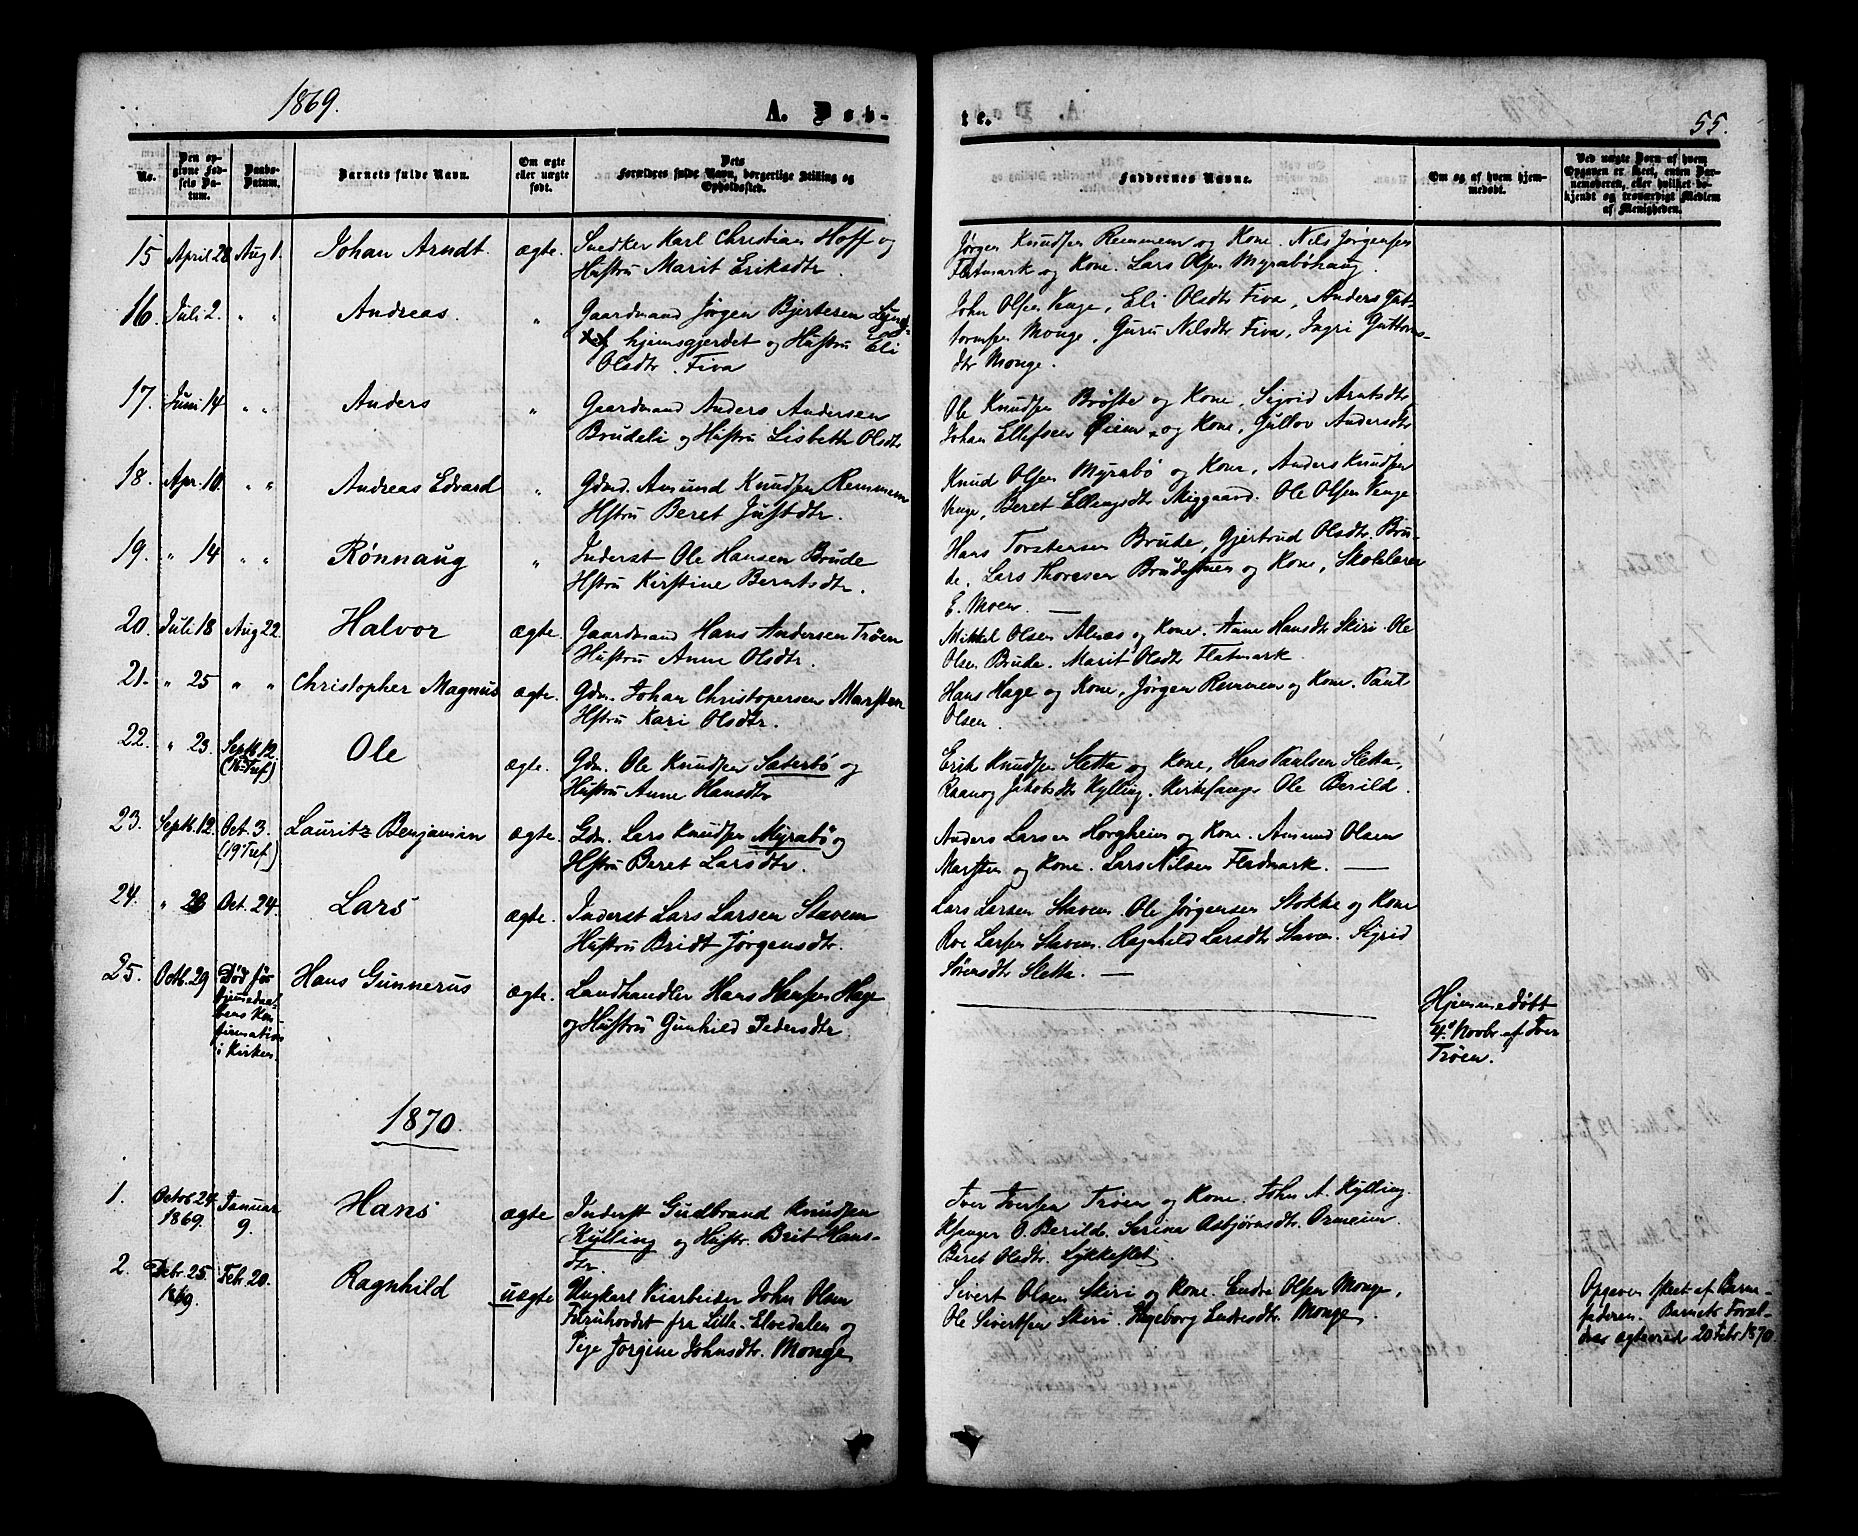 1869.
A. Døb-
te.
55.
No.
Den op-
givne Fød-
sels Da-
tum.
Daabs-
Datum.
Barnets fulde Navn.
Om ægte
eller uægte
født.
Dets
Forældres fulde Navn, borgerlige Stilling og
Opholdssted.
Faddernes Navne.
Om og af hvem hjem-
medøbt.
Ved uægte Børn af hvem
Opgaven er skeet, enten Bar-
nemoderen, eller hvilket be-
kjendt og troværdigt Medlem
af Menigheden.
15 April 28 Aug 1. Johan Arndt ægte. Snedker Karl Christian Hoff og
Hustru Marit Eriksdtr.
Jørgen Knudsen Remmem og Kone. Nils Jørgensen
Flatmark og Kone. Lars Olsen Myrabøhaug.
16. Juli 2. " " Andreas. " Gaardmand Jørgen Bjertesen
hjemsgjerdet og Hustru Eli
Olsdtr. Fiva
John Olsen Venge, Eli Olsdtr Fiva, Anders Gut-
tormsen Monge, Guru Nilsdtr Fiva, Ingri Guttorms-
dtr Monge.
17. Juni 14 " " Anders " Gaardmand Anders Andersen
Brudeli og Hustru Lisbeth Olsdtr
Ole Knudsen Brøste og Kone, Sigrid Arntsdtr,
Johan Ellefsen Øien og Kone, Gullov Andersdtr
18. Apr. 10 " " Andreas Edvard " Gdmd. Amund Knudsen Remmem
Hstru Beret Justdtr.
Knud Olsen Myrabø og Kone, Anders Knudsen
Venge, Beret Ellingsdtr Miggaard. Ole Olsen Venge
19. " 14 " " Rønnaug " Inderst Ole Hansen Brude
Hstru Kirstine Berntsdtr.
Hans Torstensen Brude, Gjertrud Olsdtr. Bru-
de. Lars Thoresen Brudestuen og Kone, Skolelærer
E. Moen. —
20. Juli 18 Aug 22. Halvor ægte. Gaardmand Hans Andersen Trøen
Hustru Anne Olsdtr.
Mikkel Olsen Alnæs og Kone. Anne Hansdtr Skiri. Ole
Olsen Brude. Marit Olsdtr Flatmark.
21. " 25 " " Christopher Magnus ægte. Gdm. Johan Christopersen Marsten
Hstru Kari Olsdtr.
Hans Hage og Kone, Jørgen Remmem og Kone. Paul
Olsen.
22. " 23. Septb. 12 (16 Tref.) Ole ægte. Gdm. Ole Knudsen Sæterbø og
Hustru Anne Hansdtr
Erik Knudsen Sletta og Kone, Hans Paulsen Sletta,
Raanog Jakobsdtr Kylling. Kirkesanger Ole Berild.
23. Septb. 12. Oct. 3. (19 Tref.) Lauritz Benjamin ægte. Gdm. Lars Knudsen Myrabø og
Hstru Beret Larsdtr.
Anders Larsen Horgheim og Kone. Amund Olsen
Marsten og Kone. Lars Nilsen Fladmark. —
24. " 28 Oct. 24. Lars ægte. Inderst Lars Larsen Stavem
Hustru Bridt Jørgensdtr.
Lars Larsen Stavem. Ole Jørgensen Stokke og Kone
Roe Larsen Stavem. Ragnhild Larsdtr Stavem. Sigrid
Sørensdtr Sletta. —
25. Octb. 29 Død før
hjemmedaa-
bens Kon-
firmation
i Kirken. Hans Gunnerus ægte. Landhandler Hans Hansen Hage
og Hustru Gunhild Pedersdtr.
Hjemmedøbt
4de Novbr. af Iver
Trøen.
1870.
1. Octob. 24. 1869. Januar 9. Hans ægte Inderst Gudbrand Knudsen
Kylling og Hustr. Brit Hans-
dtr.
Iver Iversen Trøen og Kone. John A. Kylling.
Ksanger O. Berild. Serina Asbjørnsdtr. Ormeim.
Beret Olsdtr. Lykkeslet.
2. Debr. 25. 1869. Febr. 20. Ragnhild uægte Ungkarl Veiarbeider John Olsen
fra Lille-Elvedalen og
Pige Jørgine Johnsdtr. Monge
Sivert Olsen Skiri og Kone. Endre Olsen Monge,
Ole Sivertsen Skiri. Ingeborg Endresdtr. Monge
Opgaven skeet af Barne-
faderen. Barnets Foræl-
dre ægteviede 20 Febr. 1870.